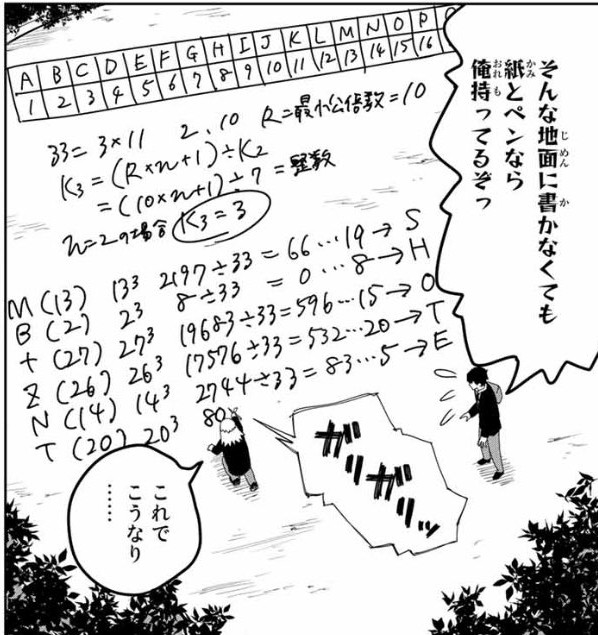 そんな地面に書かなくても
紙とペンなら
俺も持ってるぞっ
A B C D E F G H I J K L M N O P
1 2 3 4 5 6 7 8 9 10 11 12 13 14 15 16
33=3×11 2、10 R=最小公倍数=10
K3=(R×n+1)÷K2
=(10×n+1)÷7=整数
n=2の場合 K3=3
M(13) 13³ 2197÷33=66…19→S
B(2) 2³ 8÷33=0…8→H
+(27) 27³ 19683÷33=596…15→O
Z(26) 26³ 17576÷33=532…20→T
N(14) 14³ 2744÷33=83…5→E
T(20) 20³ 80
ガリガリッ
これで
こうなり
……